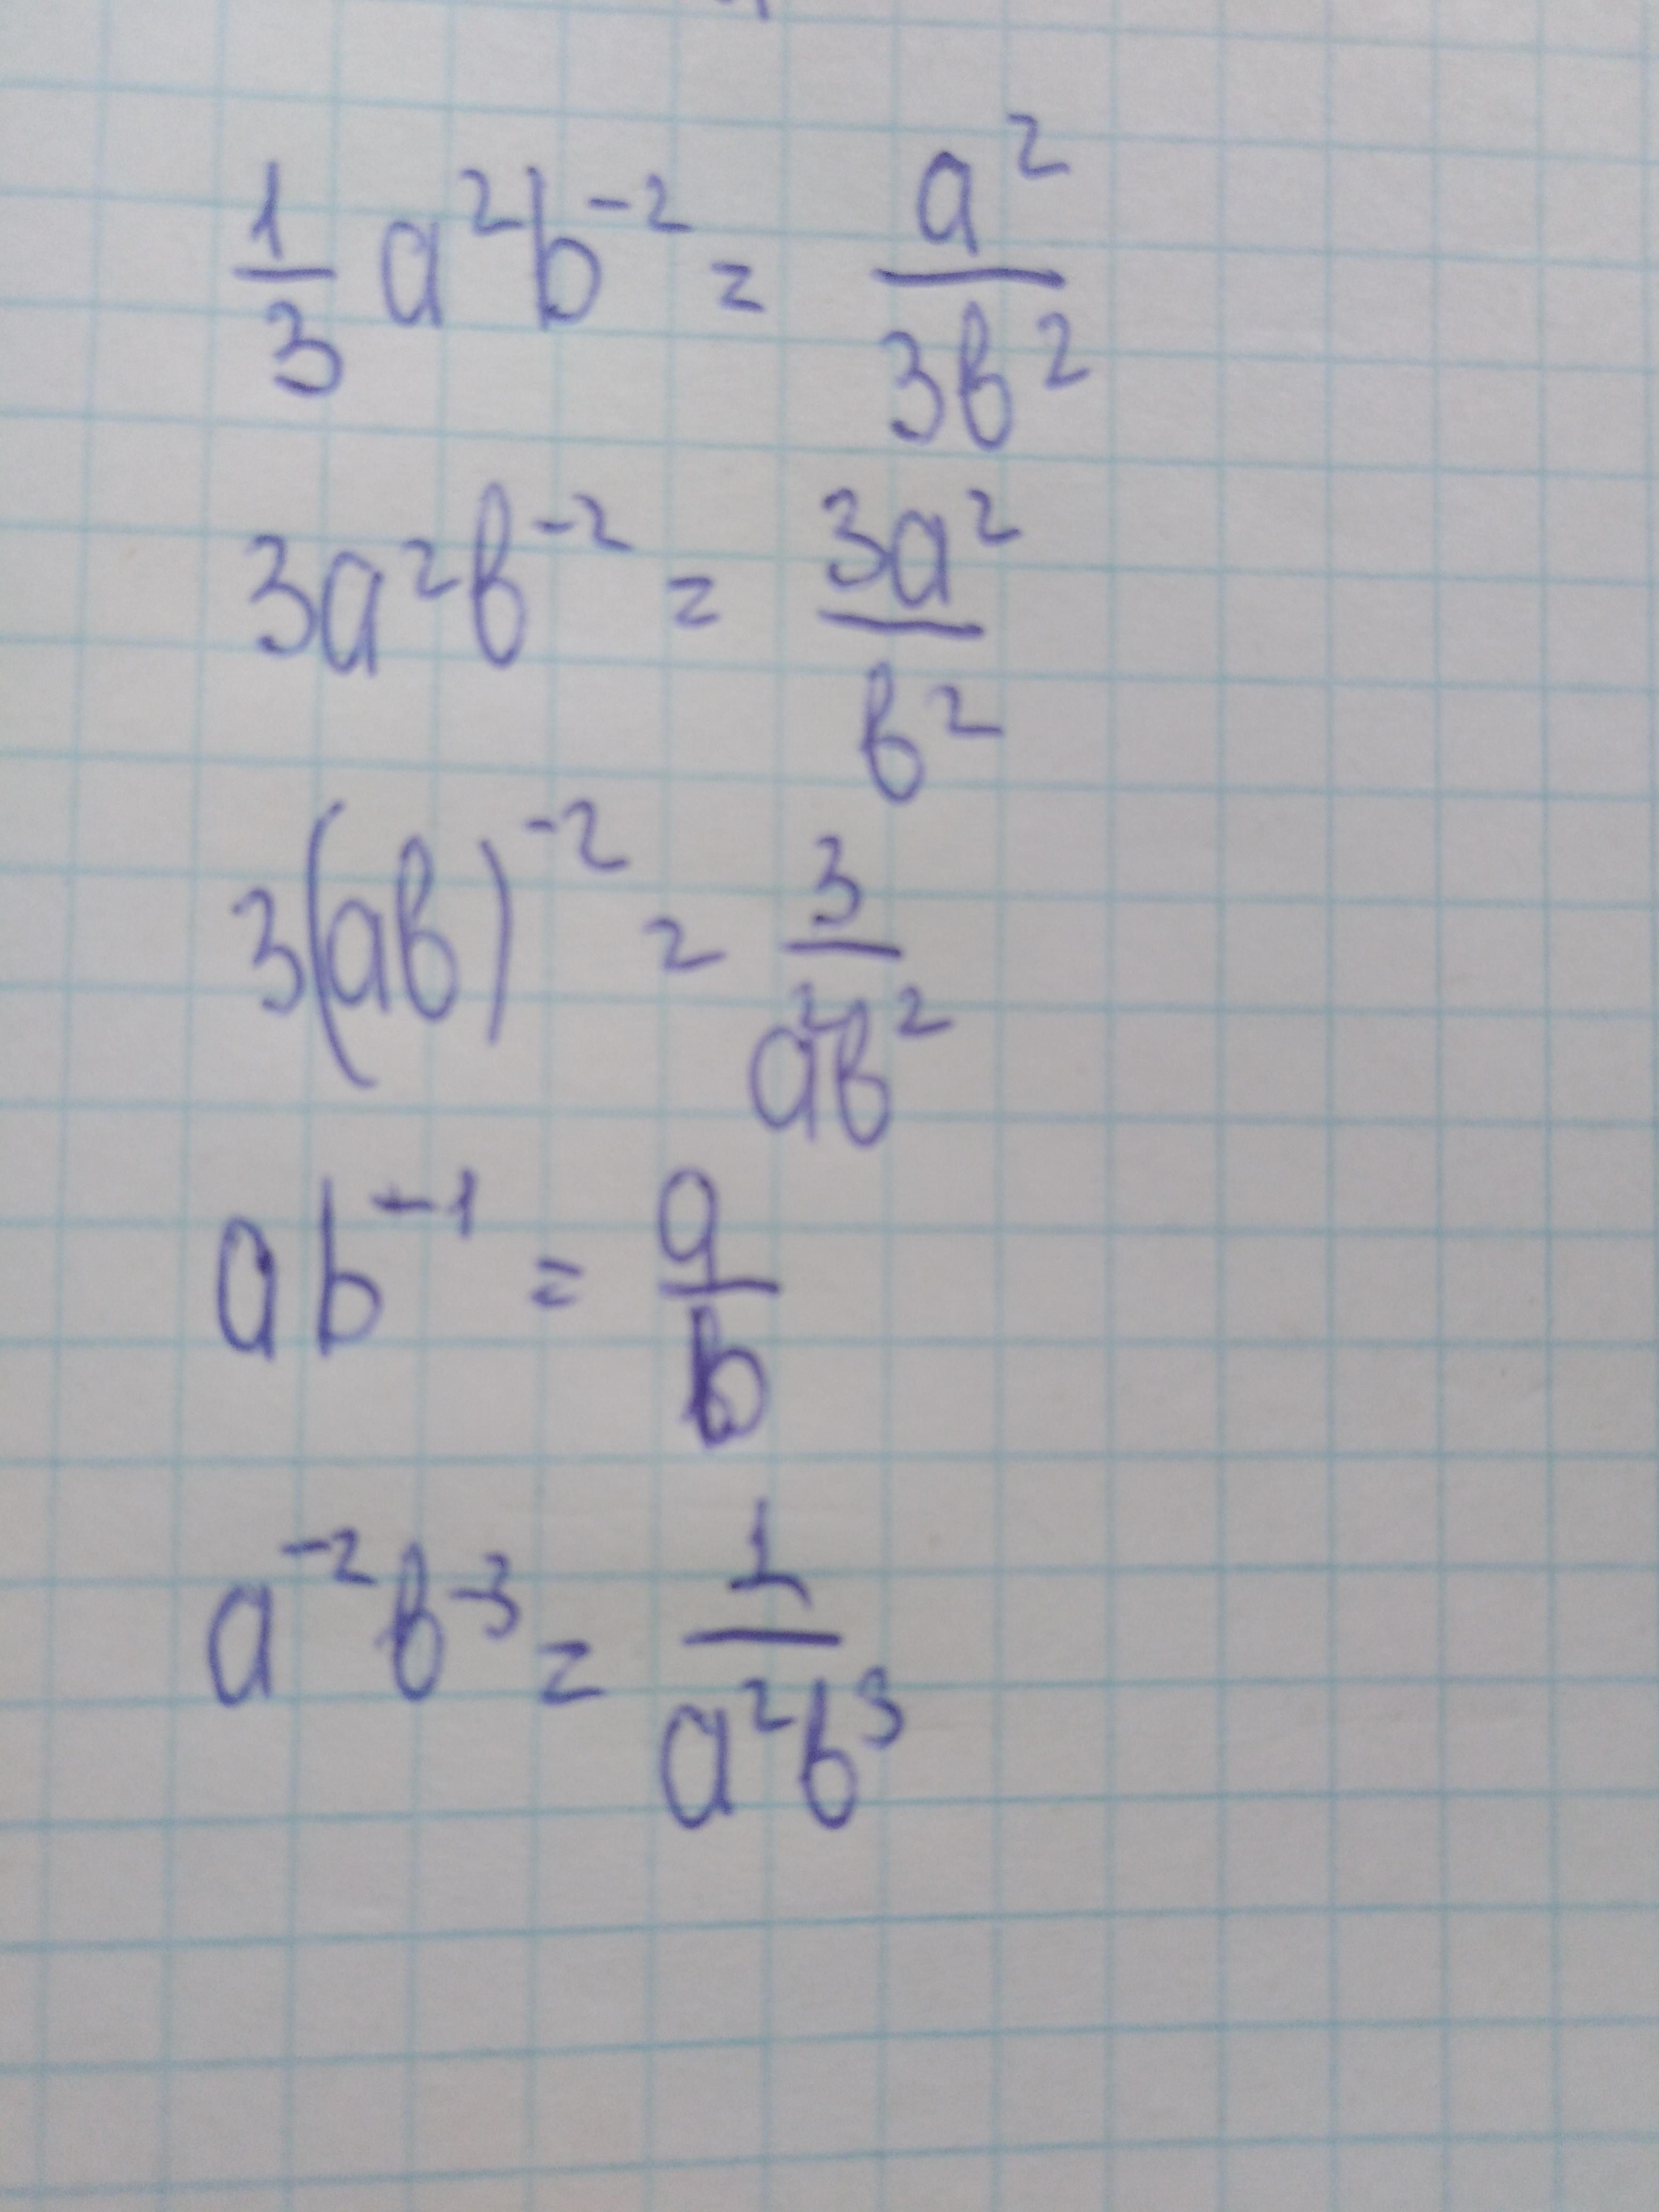 1/3 a²b⁻² = a²/3b²
3a²b⁻² = 3a²/b²
3(ab)⁻² = 3/a²b²
ab⁻¹ = a/b
a⁻²b⁻³ = 1/a²b³